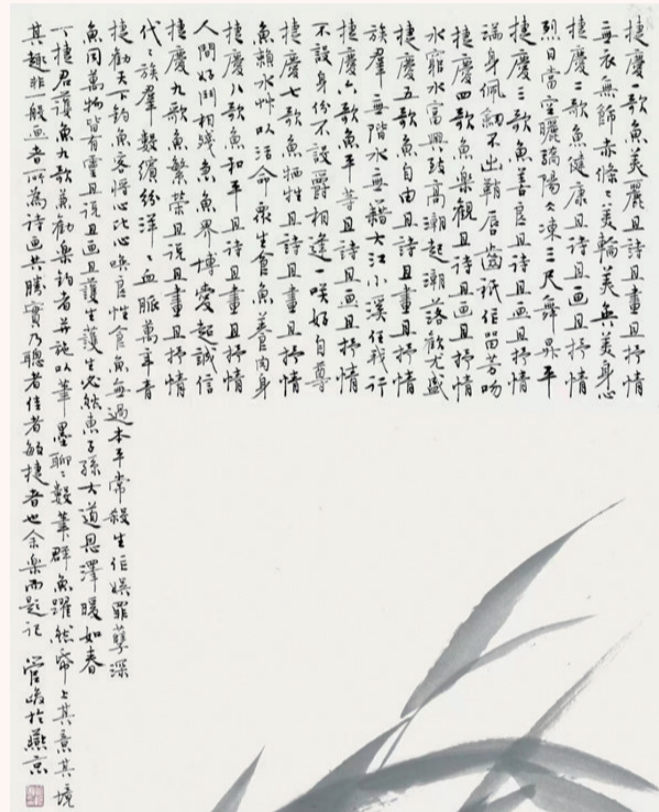 捷慶一歌魚美麗且詩且畫且抒情
無衣無飾赤條條美輪美奐美身心
捷慶二歌魚健康且詩且画且抒情
烈日當空曬驕陽冰凍三尺舞昇平
捷慶三歌魚善良且詩且画且抒情
滿身佩劍不出鞘唇齒祇作留芳吻
捷慶四歌魚樂觀且诗且画且抒情
水窮水富興致高潮起潮落歡尤盛
捷慶五歌魚自由且詩且畫且抒情
族羣無階水無籍大江小溪任我行
捷慶六歌魚平等且詩且画且抒情
不設身份不設爵相逢一咲好自尊
捷慶七歌魚牺牲且詩且畫且抒情
魚賴水艸以活命眾生食魚養肉身
捷慶八歌魚和平且诗且畫且抒情
人間好鬥相残煮魚界博愛超誠信
捷慶九歌魚繁荣且说且畫且抒情
代代族羣數繽纷洋洋血脈萬年青
捷勸天下釣魚客将心比心喚良性食魚無過本平常殺生作娛罪孽深
魚同萬物皆有靈且说且画且護生護生必然惠子孫大道恩澤暖如春
丁捷君護魚九歌兼勸樂釣者并施以筆墨聊聊數筆群魚躍然紙上其意其境
其趣非一般画者所為詩画共勝實乃聰者佳者敏捷者也余樂而題记 管峻於燕京